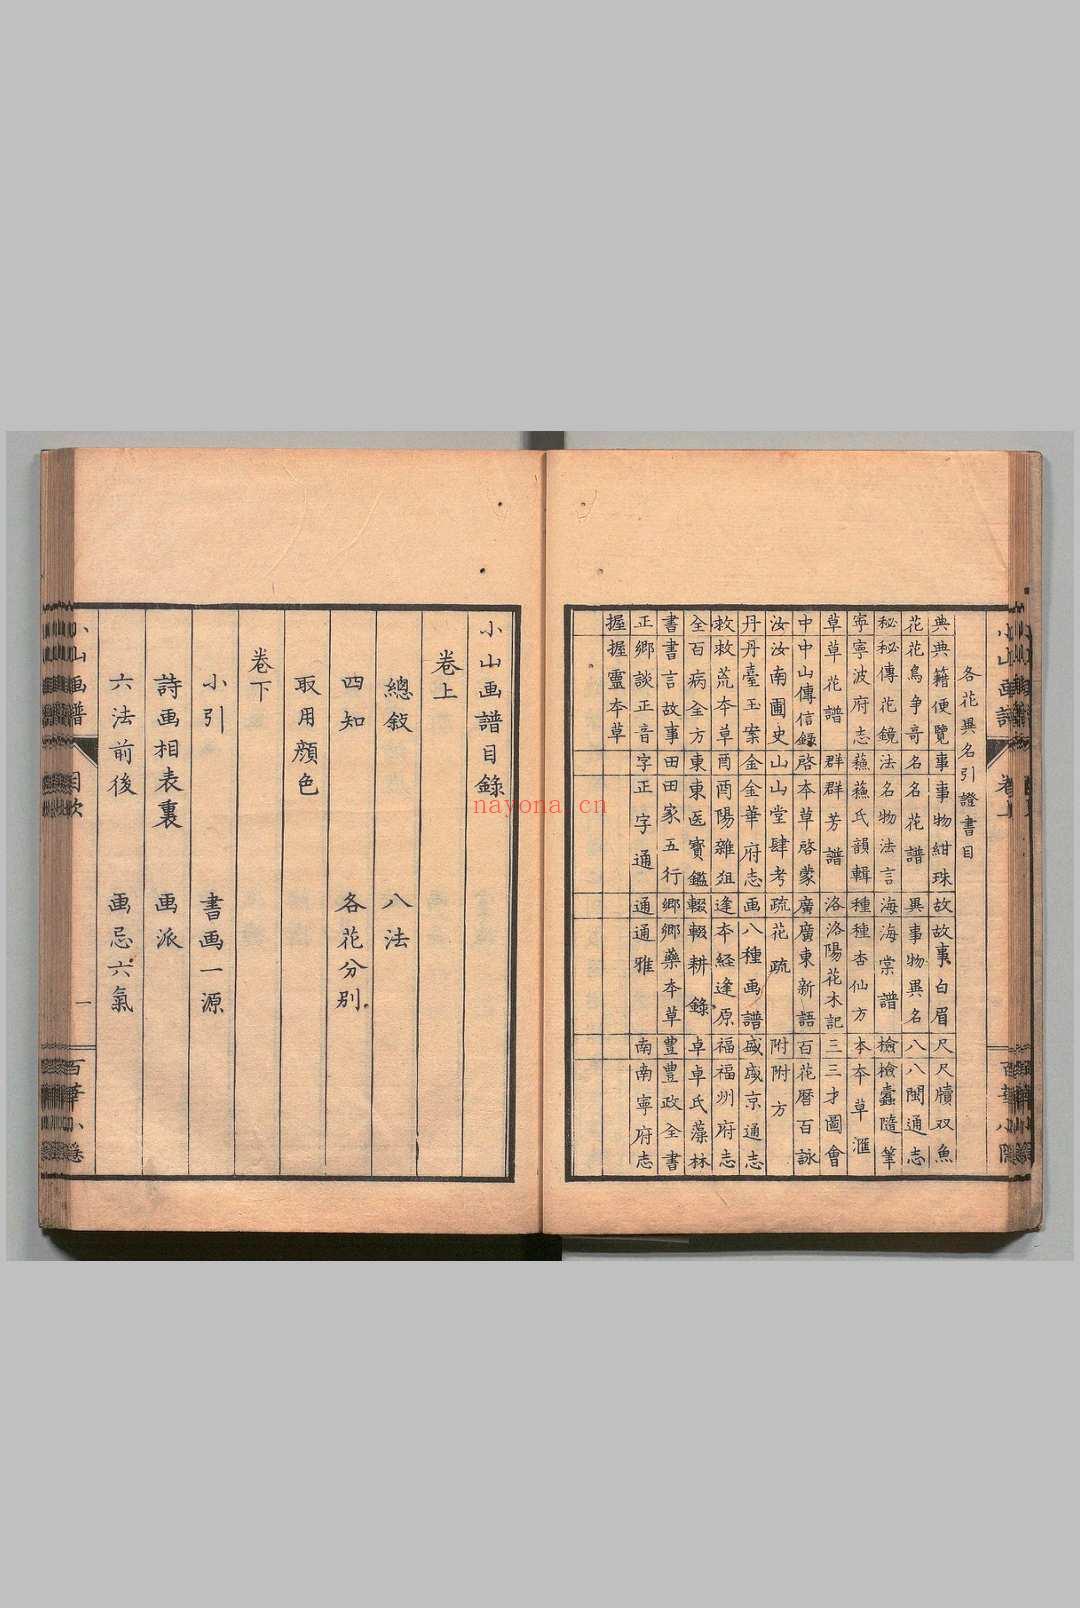 各花異名引證書目
典 典籍便覽 事 事物紺珠 故 故事白眉 尺 尺牘双魚
花 花鳥争奇 名 名花譜 異 事物異名 八 八閩通志
秘 秘傳花鏡 法 名物法言 海 海棠譜 檢 檢蠹隨筆
寧 寧波府志 蘓 蘓氏韻輯 種 種杏仙方 本 本草滙
草 草花譜 群 群芳譜 洛 洛陽花木記 三 三才圖會
中 中山傳信錄 啓 本草啓蒙 廣 廣東新語 百 百花暦百詠
汝 汝南圃史 山 山堂肆考 疏 花疏 附 附方
丹 丹臺玉案 金 金華府志 画 八種画譜 盛 盛京通志
救 救荒本草 酉 酉陽雜俎 逢 本経逢原 福 福州府志
全 百病全方 東 東医寶鑑 輟 輟耕錄 卓 卓氏藻林
書 書言故事 田 田家五行 鄉 鄉藥本草 豊 豊政全書
正 鄉談正音 字 正字通 通 通雅 南 南寧府志
握 握靈本草
小山画譜目錄
卷上
總敘 八法
四知 各花分別
取用顔色
卷下
小引 書画一源
詩画相表裏 画派
六法前後 画忌六氣
小山画譜 目次 一
nayona.cn